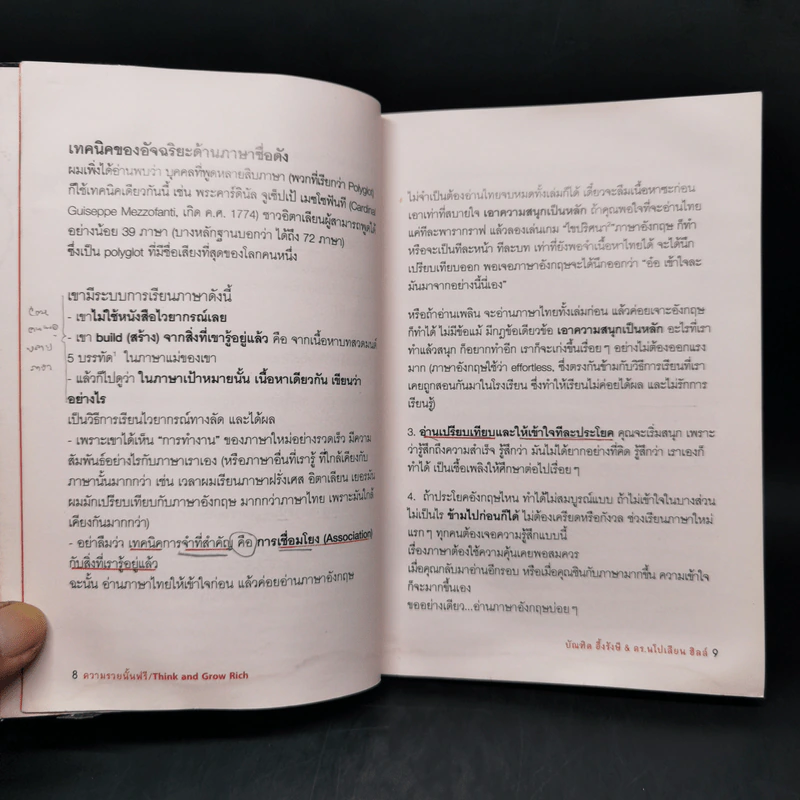 เทคนิคของอัจฉริยะด้านภาษาชื่อดัง
ผมเพิ่งได้อ่านพบว่า บุคคลที่พูดหลายสิบภาษา (พวกที่เรียกว่า Polyglot)
ก็ใช้เทคนิคเดียวกันนี้ เช่น พระคาร์ดินัล จูเซ็ปเป้ เมซโซฟันที (Cardinal
Guiseppe Mezzofanti, เกิด ค.ศ. 1774) ชาวอิตาเลียนผู้สามารถพูดได้
อย่างน้อย 39 ภาษา (บางหลักฐานบอกว่า ได้ถึง 72 ภาษา)
ซึ่งเป็น polyglot ที่มีชื่อเสียงที่สุดของโลกคนหนึ่ง
เขามีระบบการเรียนภาษาดังนี้
- เขาไม่ใช้หนังสือไวยากรณ์เลย
- เขา build (สร้าง) จากสิ่งที่เขารู้อยู่แล้ว คือ จากเนื้อหาบทสวดมนต์
5 บรรทัด ในภาษาแม่ของเขา
- แล้วก็ไปดูว่า ในภาษาเป้าหมายนั้น เนื้อหาเดียวกัน เขียนว่า
อย่างไร
เป็นวิธีการเรียนไวยากรณ์ทางลัด และได้ผล
- เพราะเขาได้เห็น "การทำงาน" ของภาษาใหม่อย่างรวดเร็ว มีความ
สัมพันธ์อย่างไรกับภาษาเราเอง (หรือภาษาอื่นที่เรารู้ ที่ใกล้เคียงกับ
ภาษานั้นมากกว่า เช่น เวลาผมเรียนภาษาฝรั่งเศส อิตาเลียน เยอรมัน
ผมมักเปรียบเทียบกับภาษาอังกฤษ มากกว่าภาษาไทย เพราะมันใกล้
เคียงกันมากกว่า)
- อย่าลืมว่า เทคนิคการจำที่สำคัญ คือ การเชื่อมโยง (Association)
กับสิ่งที่เรารู้อยู่แล้ว
ฉะนั้น อ่านภาษาไทยให้เข้าใจก่อน แล้วค่อยอ่านภาษาอังกฤษ
8 ความรวยนั้นฟรี/Think and Grow Rich
ไม่จำเป็นต้องอ่านไทยจบหมดทั้งเล่มก็ได้ เดี๋ยวจะลืมเนื้อหาซะก่อน
เอาเท่าที่สบายใจ เอาความสนุกเป็นหลัก ถ้าคุณพอใจที่จะอ่านไทย
แค่ทีละพารากราฟ แล้วลองเล่นเกม "ไขปริศนา" ภาษาอังกฤษ ก็ทำ
หรือจะเป็นทีละหน้า ทีละบท เท่าที่ยังพอจำเนื้อหาไทยได้ จะได้นึก
เปรียบเทียบออก พอเจอภาษาอังกฤษจะได้นึกออกว่า "อ๋อ เข้าใจละ
มันมาจากอย่างนี้นี่เอง"
หรือถ้าอ่านเพลิน จะอ่านภาษาไทยทั้งเล่มก่อน แล้วค่อยเจาะอังกฤษ
ก็ทำได้ ไม่มีข้อแม้ มีกฎข้อเดียวคือ เอาความสนุกเป็นหลัก อะไรที่เรา
ทำแล้วสนุก ก็อยากทำอีก เราก็จะเก่งขึ้นเรื่อยๆ อย่างไม่ต้องออกแรง
มาก (ภาษาอังกฤษใช้ว่า effortless. ซึ่งตรงกันข้ามกับวิธีการเรียนที่เรา
เคยถูกสอนกันมาในโรงเรียน ซึ่งทำให้เรียนไม่ค่อยได้ผล และไม่รักการ
เรียนรู้)
3. อ่านเปรียบเทียบและให้เข้าใจทีละประโยค คุณจะเริ่มสนุก เพราะ
ว่ารู้สึกถึงความสำเร็จ รู้สึกว่า มันไม่ได้ยากอย่างที่คิด รู้สึกว่า เราเองก็
ทำได้ เป็นเชื้อเพลิงให้ศึกษาต่อไปเรื่อยๆ
4. ถ้าประโยคอังกฤษไหน ทำได้ไม่สมบูรณ์แบบ ถ้าไม่เข้าใจในบางส่วน
ไม่เป็นไร ข้ามไปก่อนก็ได้ ไม่ต้องเครียดหรือกังวล ช่วงเรียนภาษาใหม่
แรกๆ ทุกคนต้องเจอความรู้สึกแบบนี้
เรื่องภาษาต้องใช้ความคุ้นเคยพอสมควร
เมื่อคุณกลับมาอ่านอีกรอบ หรือเมื่อคุณชินกับภาษามากขึ้น ความเข้าใจ
ก็จะมากขึ้นเอง
ขออย่างเดียว...อ่านภาษาอังกฤษบ่อยๆ
บัณฑิต อึ้งรังษี & ดร.นโปเลียน ฮิลล์ 9